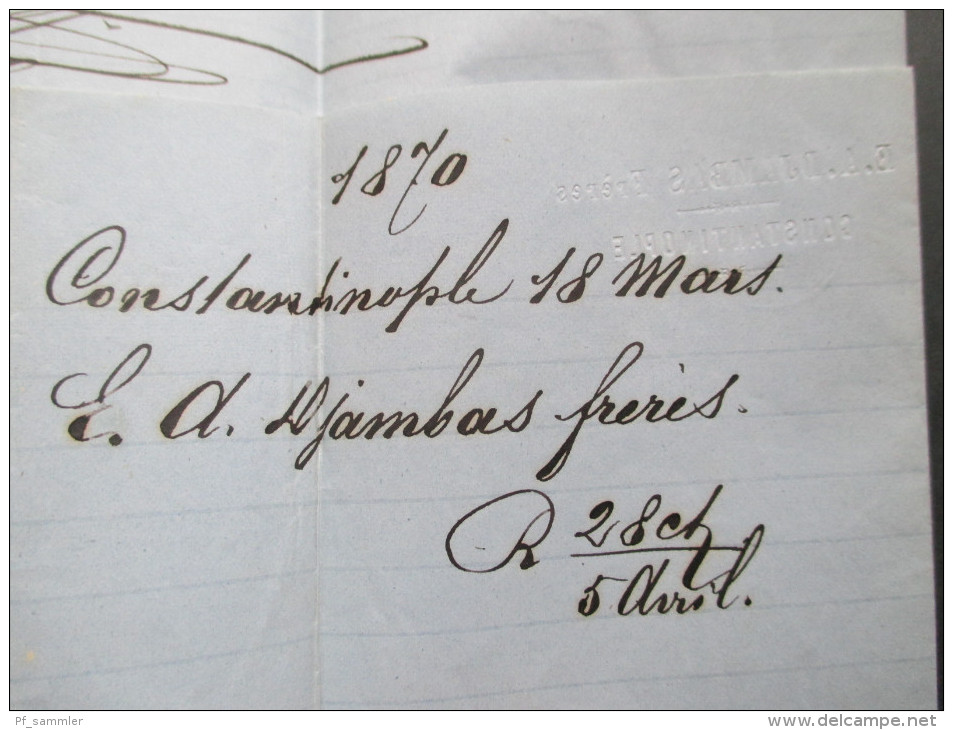 E. A. DJAMBAS Frères
CONSTANTINOPLE
1870
Constantinople 18 Mars.
E. A. Djambas frères.
R 28 ct
5 Avril.
Pf_sammler
www.delcampe.net